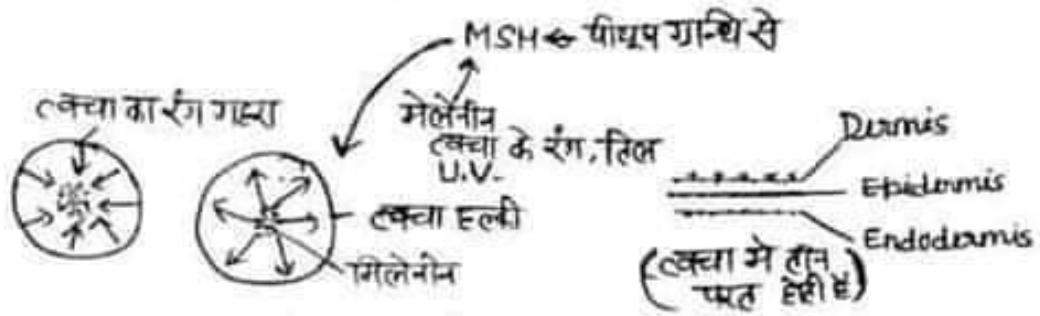 MSH ← पीयूष ग्रन्थि से
त्वचा का रंग गहरा
मेलेनीन
त्वचा के रंग, तिल
U.V.
त्वचा हल्की
मिलेनीन
Dermis
Epidermis
Endodermis
(त्वचा मे तीन
परत होती है)